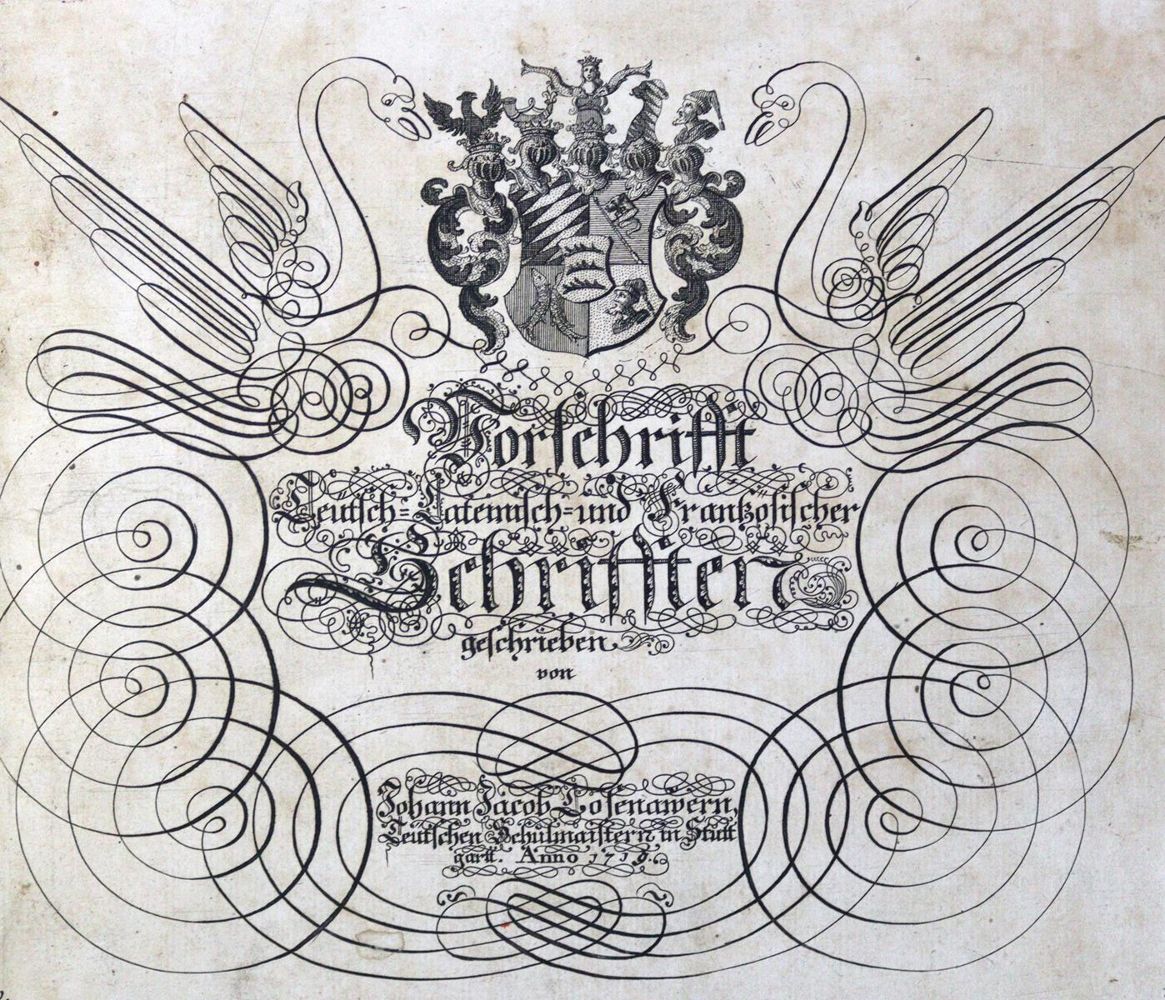 Vorschrifft
Teutsch= Lateinisch= und Frantzosischer
Schrifften
geschrieben
von
Johann Jacob Losenawern,
Teutschen Schulmaistern in Stutt
gartt. Anno 1719.